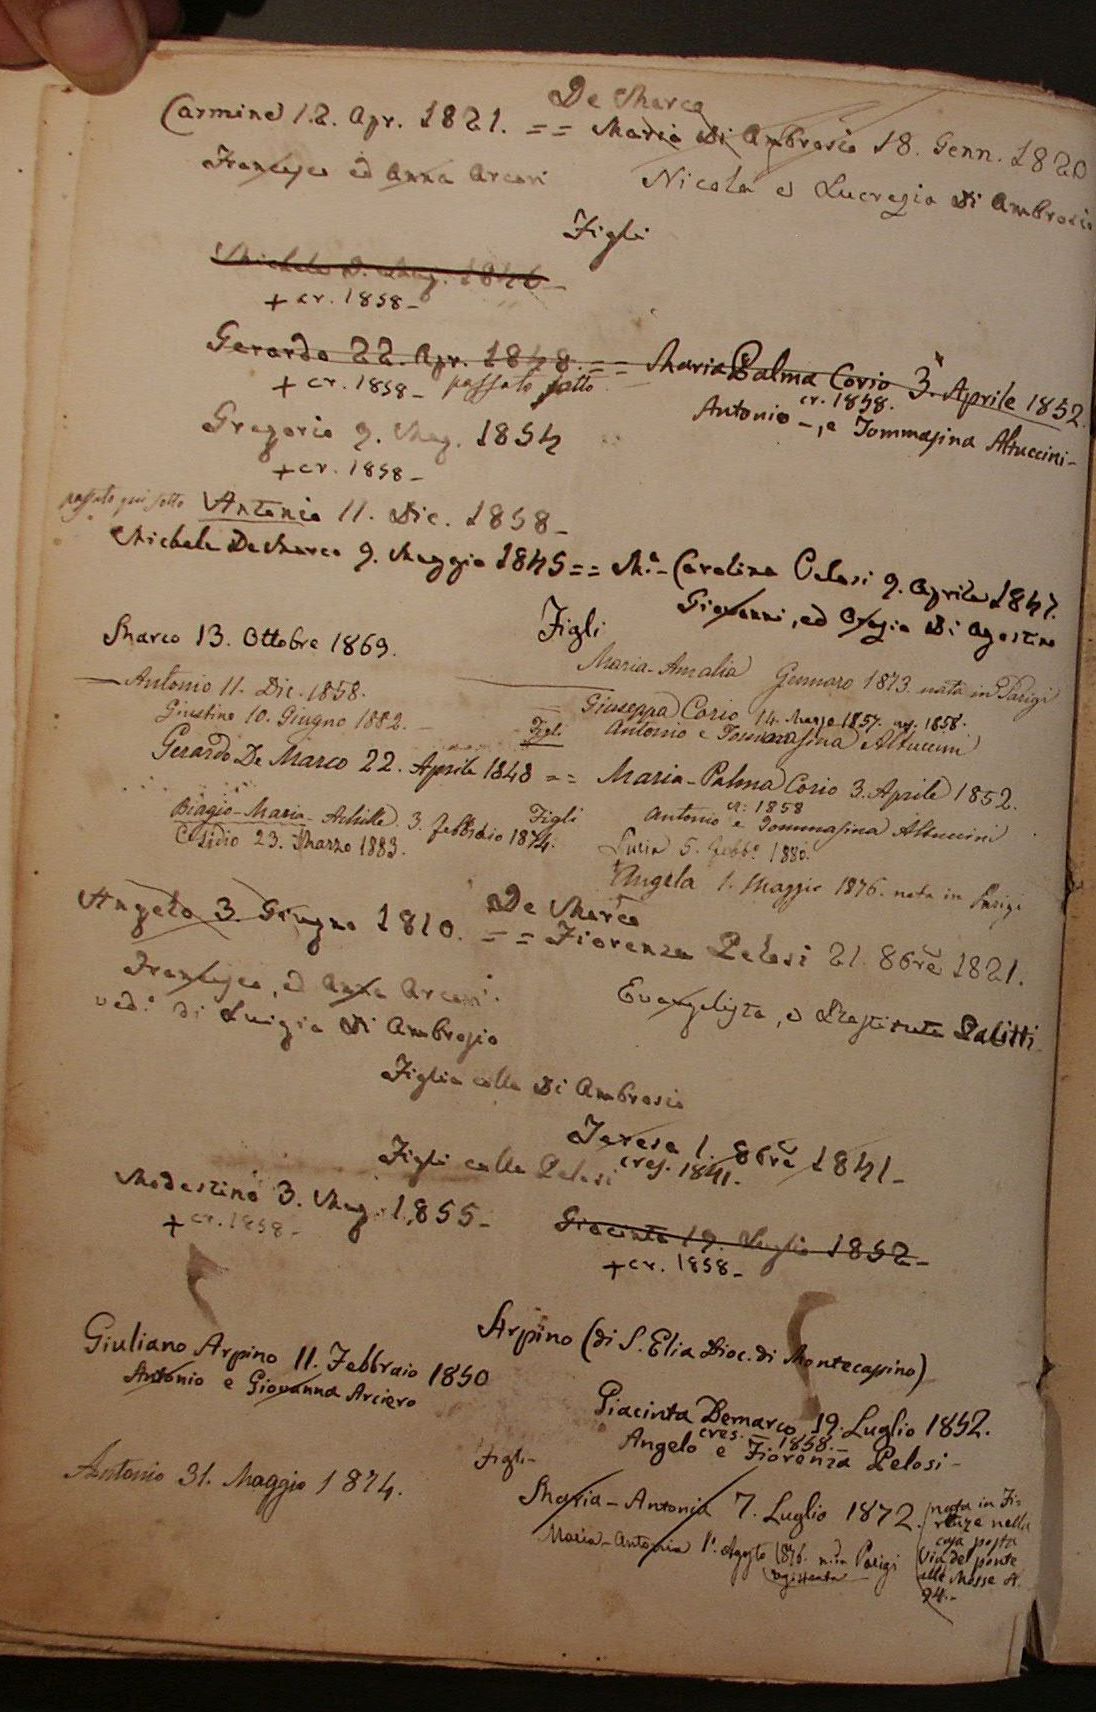 De Marco
Carmine 12. Apr. 1821. == Maria Di Ambrosio 18. Genn. 1820
Francesco ed Anna Arcari Nicola e Lucrezia Di Ambrosio
Figli
Michele 9. Mag. 1846 -
+ cr. 1858 -
Gerardo 22. Apr. 1848. == Maria Palma Corio 3. Aprile 1852.
+ cr. 1858 - passato sotto cr. 1858.
Antonio -, e Tommasina Altuccini -
Gregorio 9. Mag. 1854
+ cr. 1858 -
passato qui sotto Antonio 11. Dic. 1858 -
Michele De Marco 9. Maggio 1845 == M.a Carolina Pelosi 9. Aprile 1847.
Giovanni, ed Di Agostino
Figli
Marco 13. Ottobre 1869.
Maria-Amalia Gennaro 1873. nata in Parigi
Antonio 11. Dic. 1858. Giuseppa Corio 14. Marzo 1857. 1858.
Giustino 10. Giugno 1882. Figli Antonio e Tommasina Altuccini
Gerardo De Marco 22. Aprile 1848 == Maria-Palma Corio 3. Aprile 1852.
cr: 1858
Biagio-Maria-Achille. 3. febbraio 1874. Figli Antonio e Tommasina Altuccini
23. Marzo 1883. Lucia 5. febb.o 1880.
Angela 1. Maggio 1876. nata in Parigi
De Marco
Angelo 3. Giugno 1810. == Fiorenza Pelosi 21. 8bre 1821.
Francesco, ed Anna Arcari. Evangelista, e Restituta Palitti
ved.o di Luigia Di Ambrosio
Figlia colla Di Ambrosio
Teresa 1. 8bre 1841 -
cres. 1841.
Figli colla Pelosi
Modestino 3. Mag. 1855 -
+ cr. 1858 -
Giacinta 19. Luglio 1852 -
+ cr. 1858 -
Arpino (di S. Elia Dioc. di Montecassino)
Giuliano Arpino 11. Febbraio 1850
Antonio e Giovanna Arciero
Giacinta Demarco 19. Luglio 1852.
cres. - 1858. -
Angelo e Fiorenza Pelosi -
Figli -
Antonio 31. Maggio 1874.
Maria-Antonia 7. Luglio 1872. (nata in Fi-
renze nella
casa posta
Via del ponte
alle Mosse N.
24. -
Maria-Antonia 1. Agosto 1876. n. in Parigi